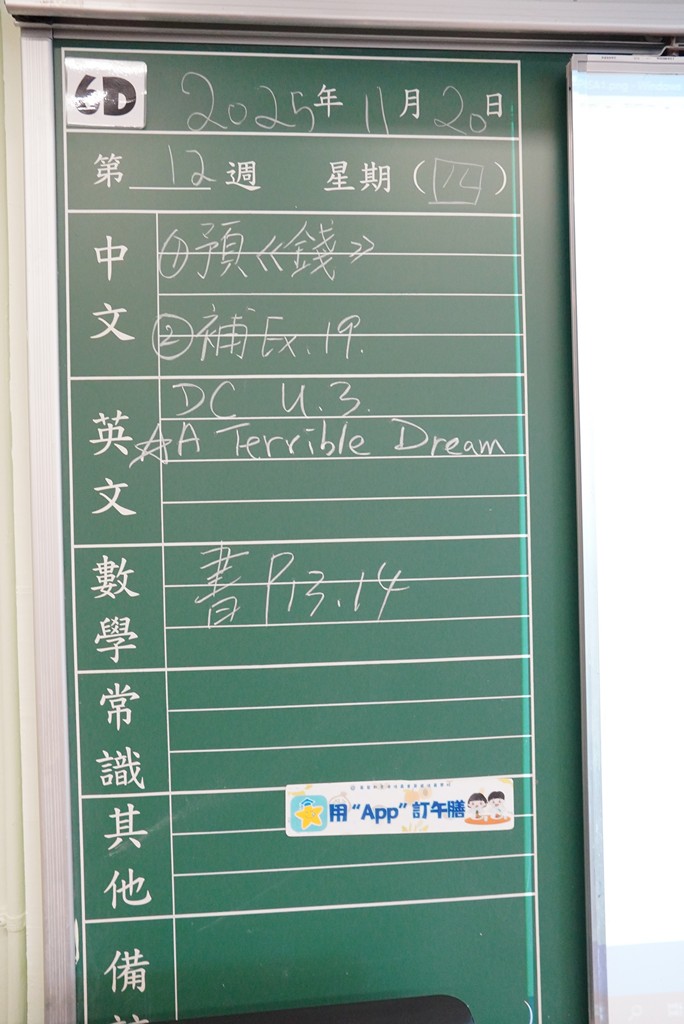 6D 2025年11月20日
第12週 星期（四）
中文
①預《錢》
②補Ex.19.
英文
DC U.3.
☆A Terrible Dream
數學
書P13.14
常識
其他
用“App”訂午膳
備